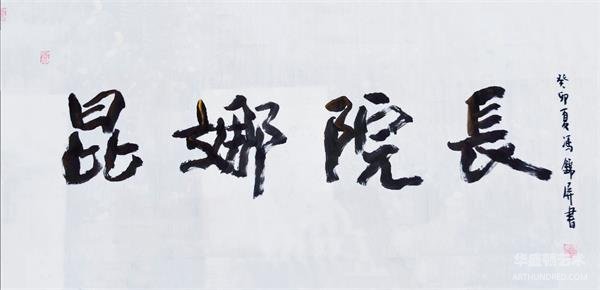 昆娜院長
癸卯夏馮錦屏書
华盛顿艺术
ARTHUNDRED.COM